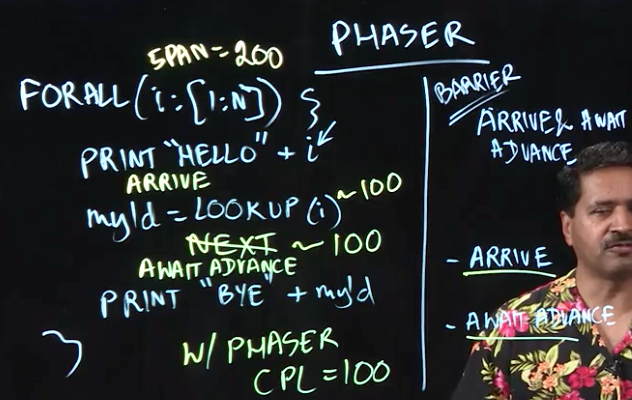 PHASER
SPAN = 200
FORALL (i:[1:N]) {
PRINT "HELLO" + i
ARRIVE
myId = LOOKUP (i) ~ 100
NEXT ~ 100
AWAIT ADVANCE
PRINT "BYE" + myId
}
W/ PHASER
CPL = 100
BARRIER
ARRIVE & AWAIT
ADVANCE
- ARRIVE
- AWAIT ADVANCE